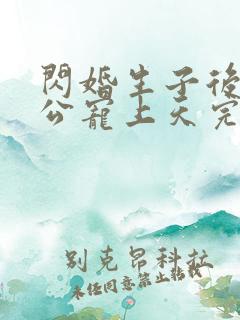 閃婚生子後
公寵上天完
別克昂科拉
未經同意禁止轉載